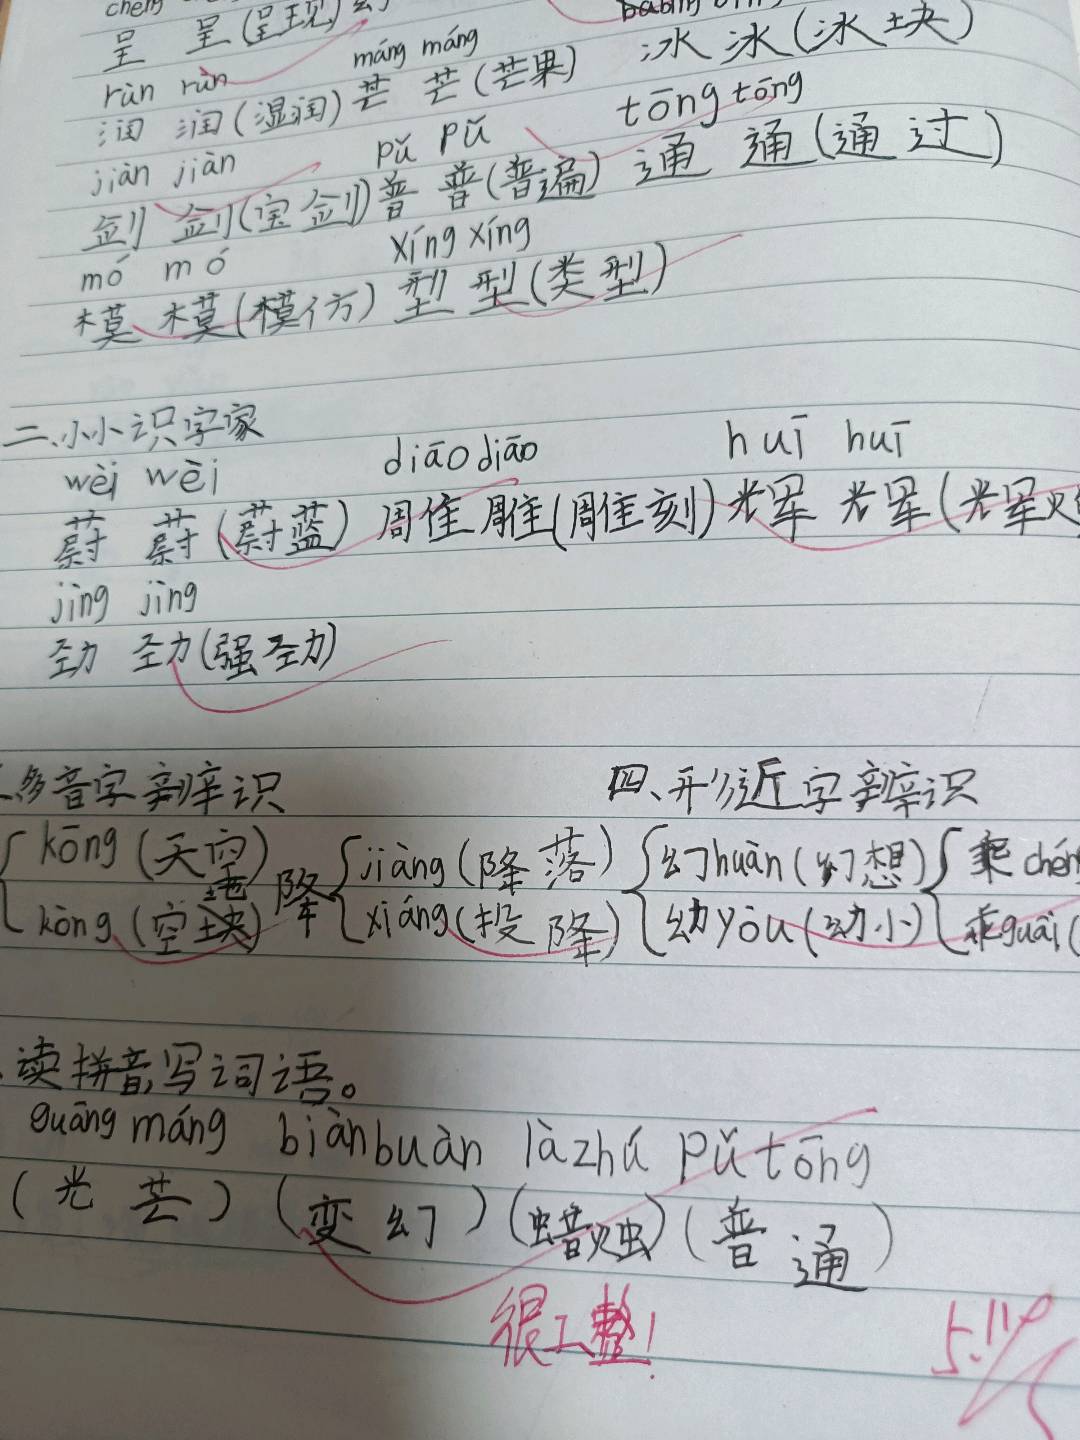 呈 呈(呈现)
rùn rùn máng máng
润 润(湿润) 芒 芒(芒果) 冰 冰(冰块)
jiàn jiàn pǔ pǔ tōng tōng
剑 剑(宝剑) 普 普(普遍) 通 通(通过)
mó mó xíng xíng
模 模(模仿) 型 型(类型)
二、小小识字家
wèi wèi diāo diāo huī huī
蔚 蔚(蔚蓝) 雕 雕(雕刻) 辉 辉(辉煌
jìng jìng
劲 劲(强劲)
多音字辨识 四、形近字辨识
kōng(天空) jiàng(降落) 幻huàn(幻想) 乘chéng
kòng(空地) 降 xiáng(投降) 幼yòu(幼小) 乖guāi(
读拼音,写词语。
guāng máng biànbuàn làzhú pǔtōng
(光芒)(变幻)(蜡烛)(普通)
很工整!
5.11